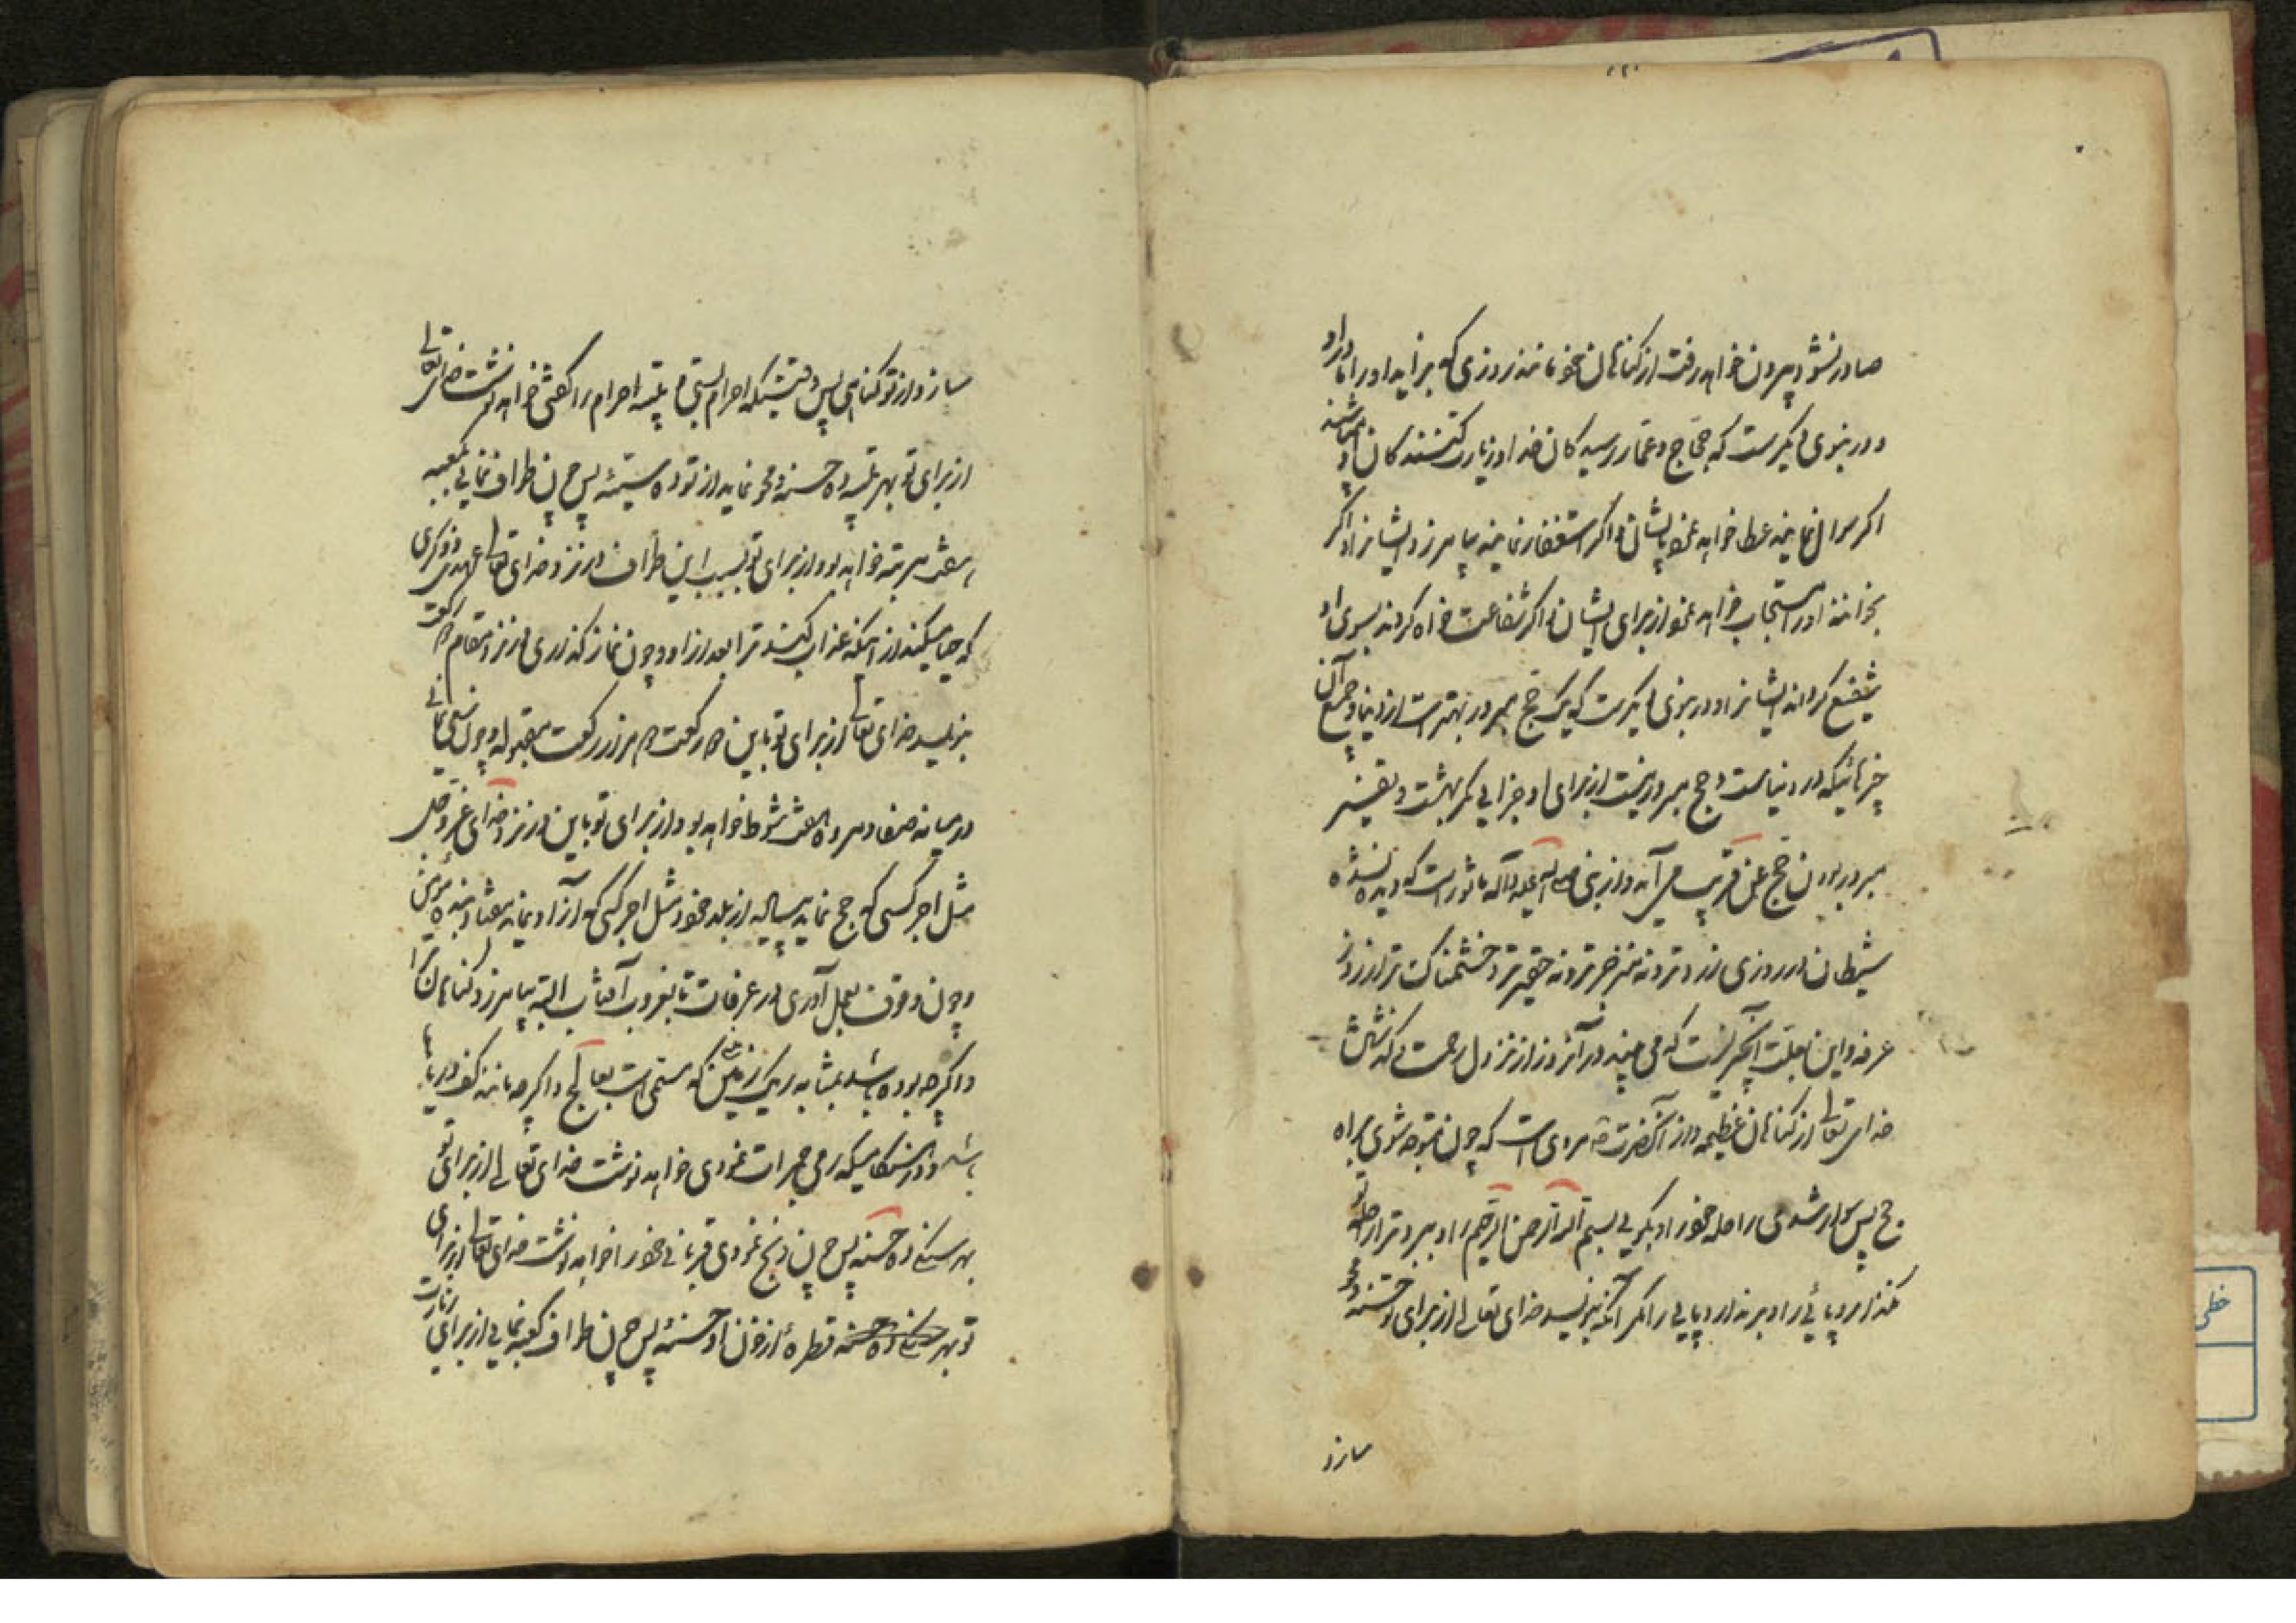 صادر نشود بیرون خواهد رفت از کناهان خود مانند روزی که بزاید او را مادر او
و در نبوی دیکر است که حجاج و عمار رسیدکان خدا و زیارت کنندکان او میباشند
اکر سوال نمایند عطا خواهد نمود بایشان و اکر استغفار نمایند بیامرزد ایشانرا و اکر
بخوانند او را مستجاب خواهد نمود از برای ایشان و اکر شفاعت خواه کردند بسوی او
شفیع کرداند ایشانرا و در نبوی دیکر است که یک حج مبرور بهتر است از دنیا و جمیع آن
چیزهائیکه در دنیاست و حج مبرور نیست از برای او جزایی مکر بهشت و تفسیر
مبرور بودن حج عن قریب می آید و از نبی صلی الله علیه وآله ماثور است که دیده نشده
شیطان در روزی زد و تر و نه حقیرتر و خشمناک تر از روز
عرفه و این بعلت آنچیزیست که می بیند در آنروز از نزول رحمت و کذشتن
خدای تعالی از کناهان عظیمه و از آنحضرت مرویست که چون متوجه شوی براه
حج پس سوار شدی راحله خود را و بکویی بسم الله الرحمن الرحیم و ببرد ترا راحله تو
نکذارد پائی را و بر ندارد پایی را مکر آنکه بنویسد خدای تعالی از برای تو حسنه و محو
سازد
سازد از تو کناهی پس وقتیکه احرام بستی و تلبیه احرام را کفتی خواهد نوشت خدای تعالی
از برای تو بهر تلبیه ده حسنه و محو نماید از تو ده سیئه پس چون طواف نمایی بکعبه
هفت مرتبه خواهد بود از برای تو بسبب این طواف در نزد خدای تعالی عهدی و ذکری
که حیا میکند از اینکه عذاب کند ترا بعد از او و چون نماز کذاری در نزد مقام دو رکعت
بنویسد خدای تعالی از برای تو باین دو رکعت دو هزار رکعت مقبوله و چون سعی نمائی
در میانه صفا و مروه هفت شوط خواهد بود از برای تو باین در نزد خدای عز و جل
مثل اجر کسی که حج نماید پیاده از بلد خود و مثل اجر کسی که آزاد نماید هفتاد بنده مؤمن
و چون وقوف بعمل آوری در عرفات تا بغروب آفتاب البته بیامرزد کناهان ترا
و اکرچه بوده باشد بمثابه ریک زمین که مسمی است بعالج و اکرچه مانند کف دریا
باشد و در هنکامیکه رمی جمرات نمودی خواهد نوشت خدای تعالی از برای تو
بهر سنکی ده حسنه پس چون ذبح نمودی قربانی خود را خواهد نوشت خدای تعالی از برای
تو بهر قطره از خون او حسنه پس چون طواف کعبه نمایی از برای زیارت
خطی